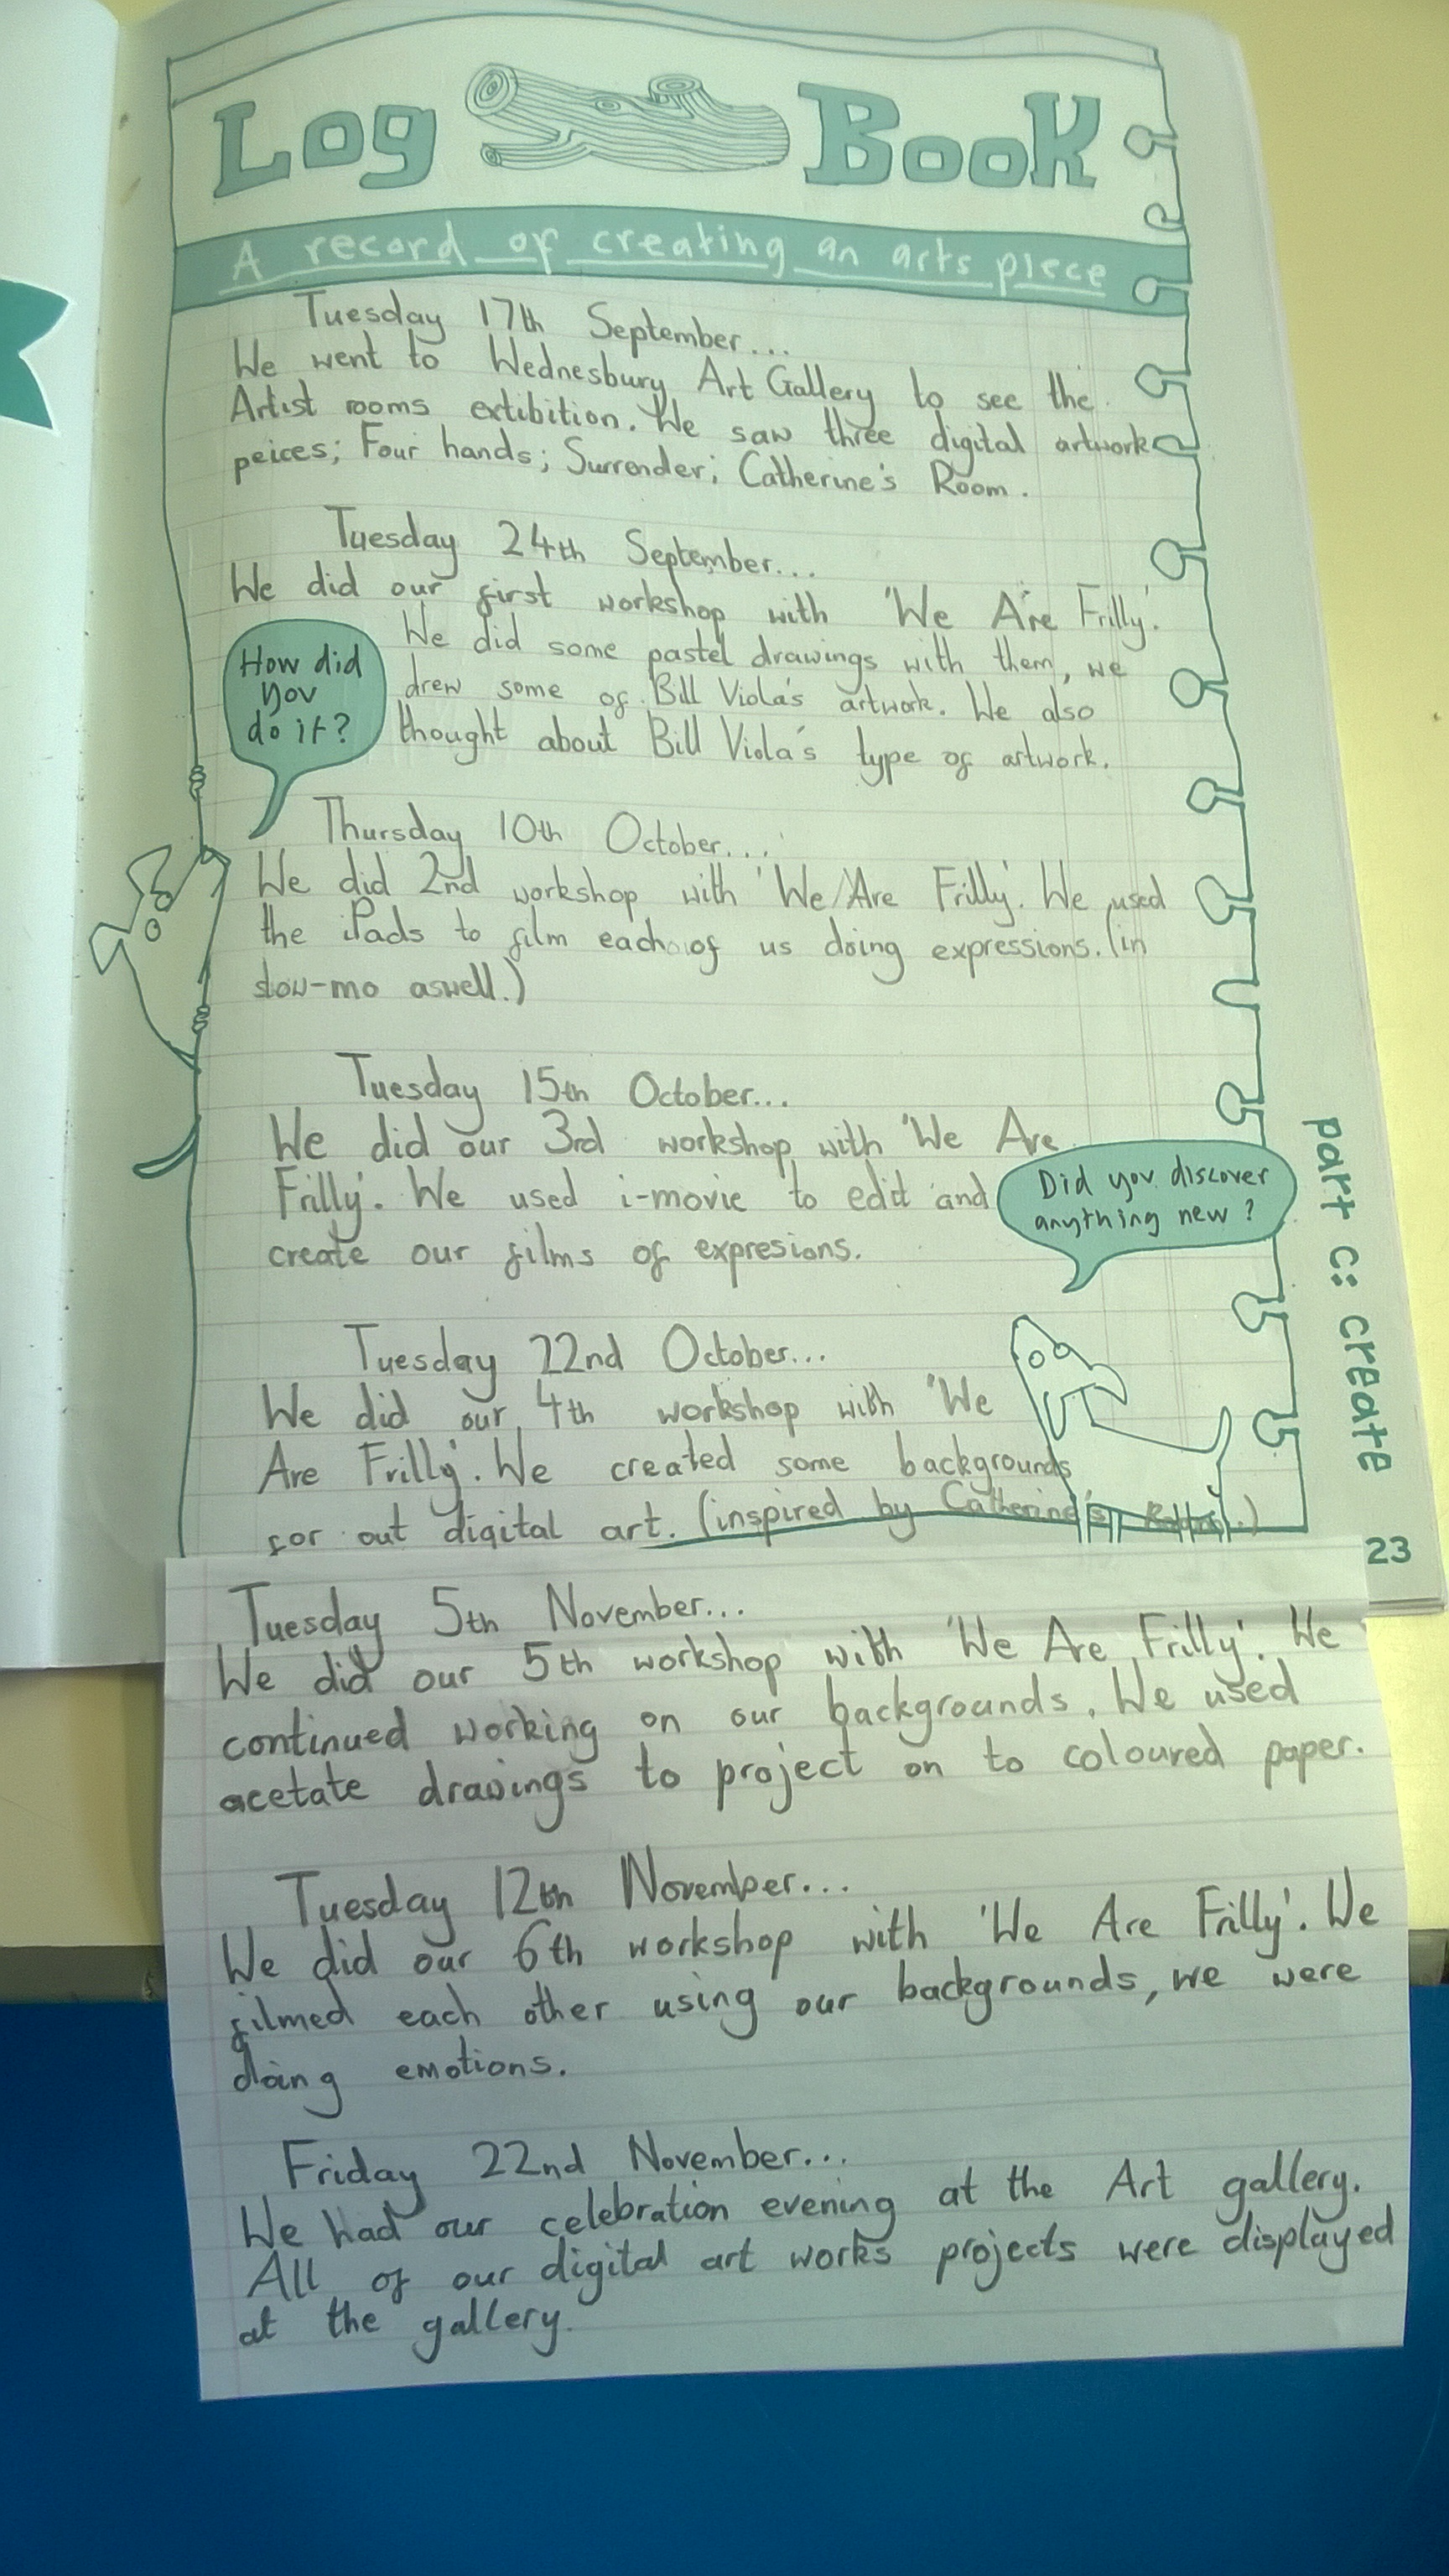 Log Book
A record of creating an arts piece
Tuesday 17th September...
We went to Wednesbury Art Gallery to see the
Artist rooms extibition. We saw three digital artwork
peices; Four hands; Surrender; Catherine's Room.
Tuesday 24th September...
We did our first workshop with 'We Are Frilly'.
We did some pastel drawings with them, we
drew some of Bill Viola's artwork. We also
thought about Bill Viola's type of artwork.
How did
you
do it?
Thursday 10th October...
We did 2nd workshop with 'We Are Frilly'. We used
the iPads to film each of us doing expressions. (in
slow-mo aswell.)
Tuesday 15th October...
We did our 3rd workshop with 'We Are
Frilly'. We used i-movie to edit and
create our films of expresions.
Did you discover
anything new?
Tuesday 22nd October...
We did our 4th workshop with 'We
Are Frilly'. We created some backgrounds
for out digital art. (inspired by Catherine's Room.)
part c: create
23
Tuesday 5th November...
We did our 5th workshop with 'We Are Frilly'. We
continued working on our backgrounds. We used
acetate drawings to project on to coloured paper.
Tuesday 12th November...
We did our 6th workshop with 'We Are Frilly'. We
filmed each other using our backgrounds, we were
doing emotions.
Friday 22nd November...
We had our celebration evening at the Art gallery.
All of our digital art works projects were displayed
at the gallery.